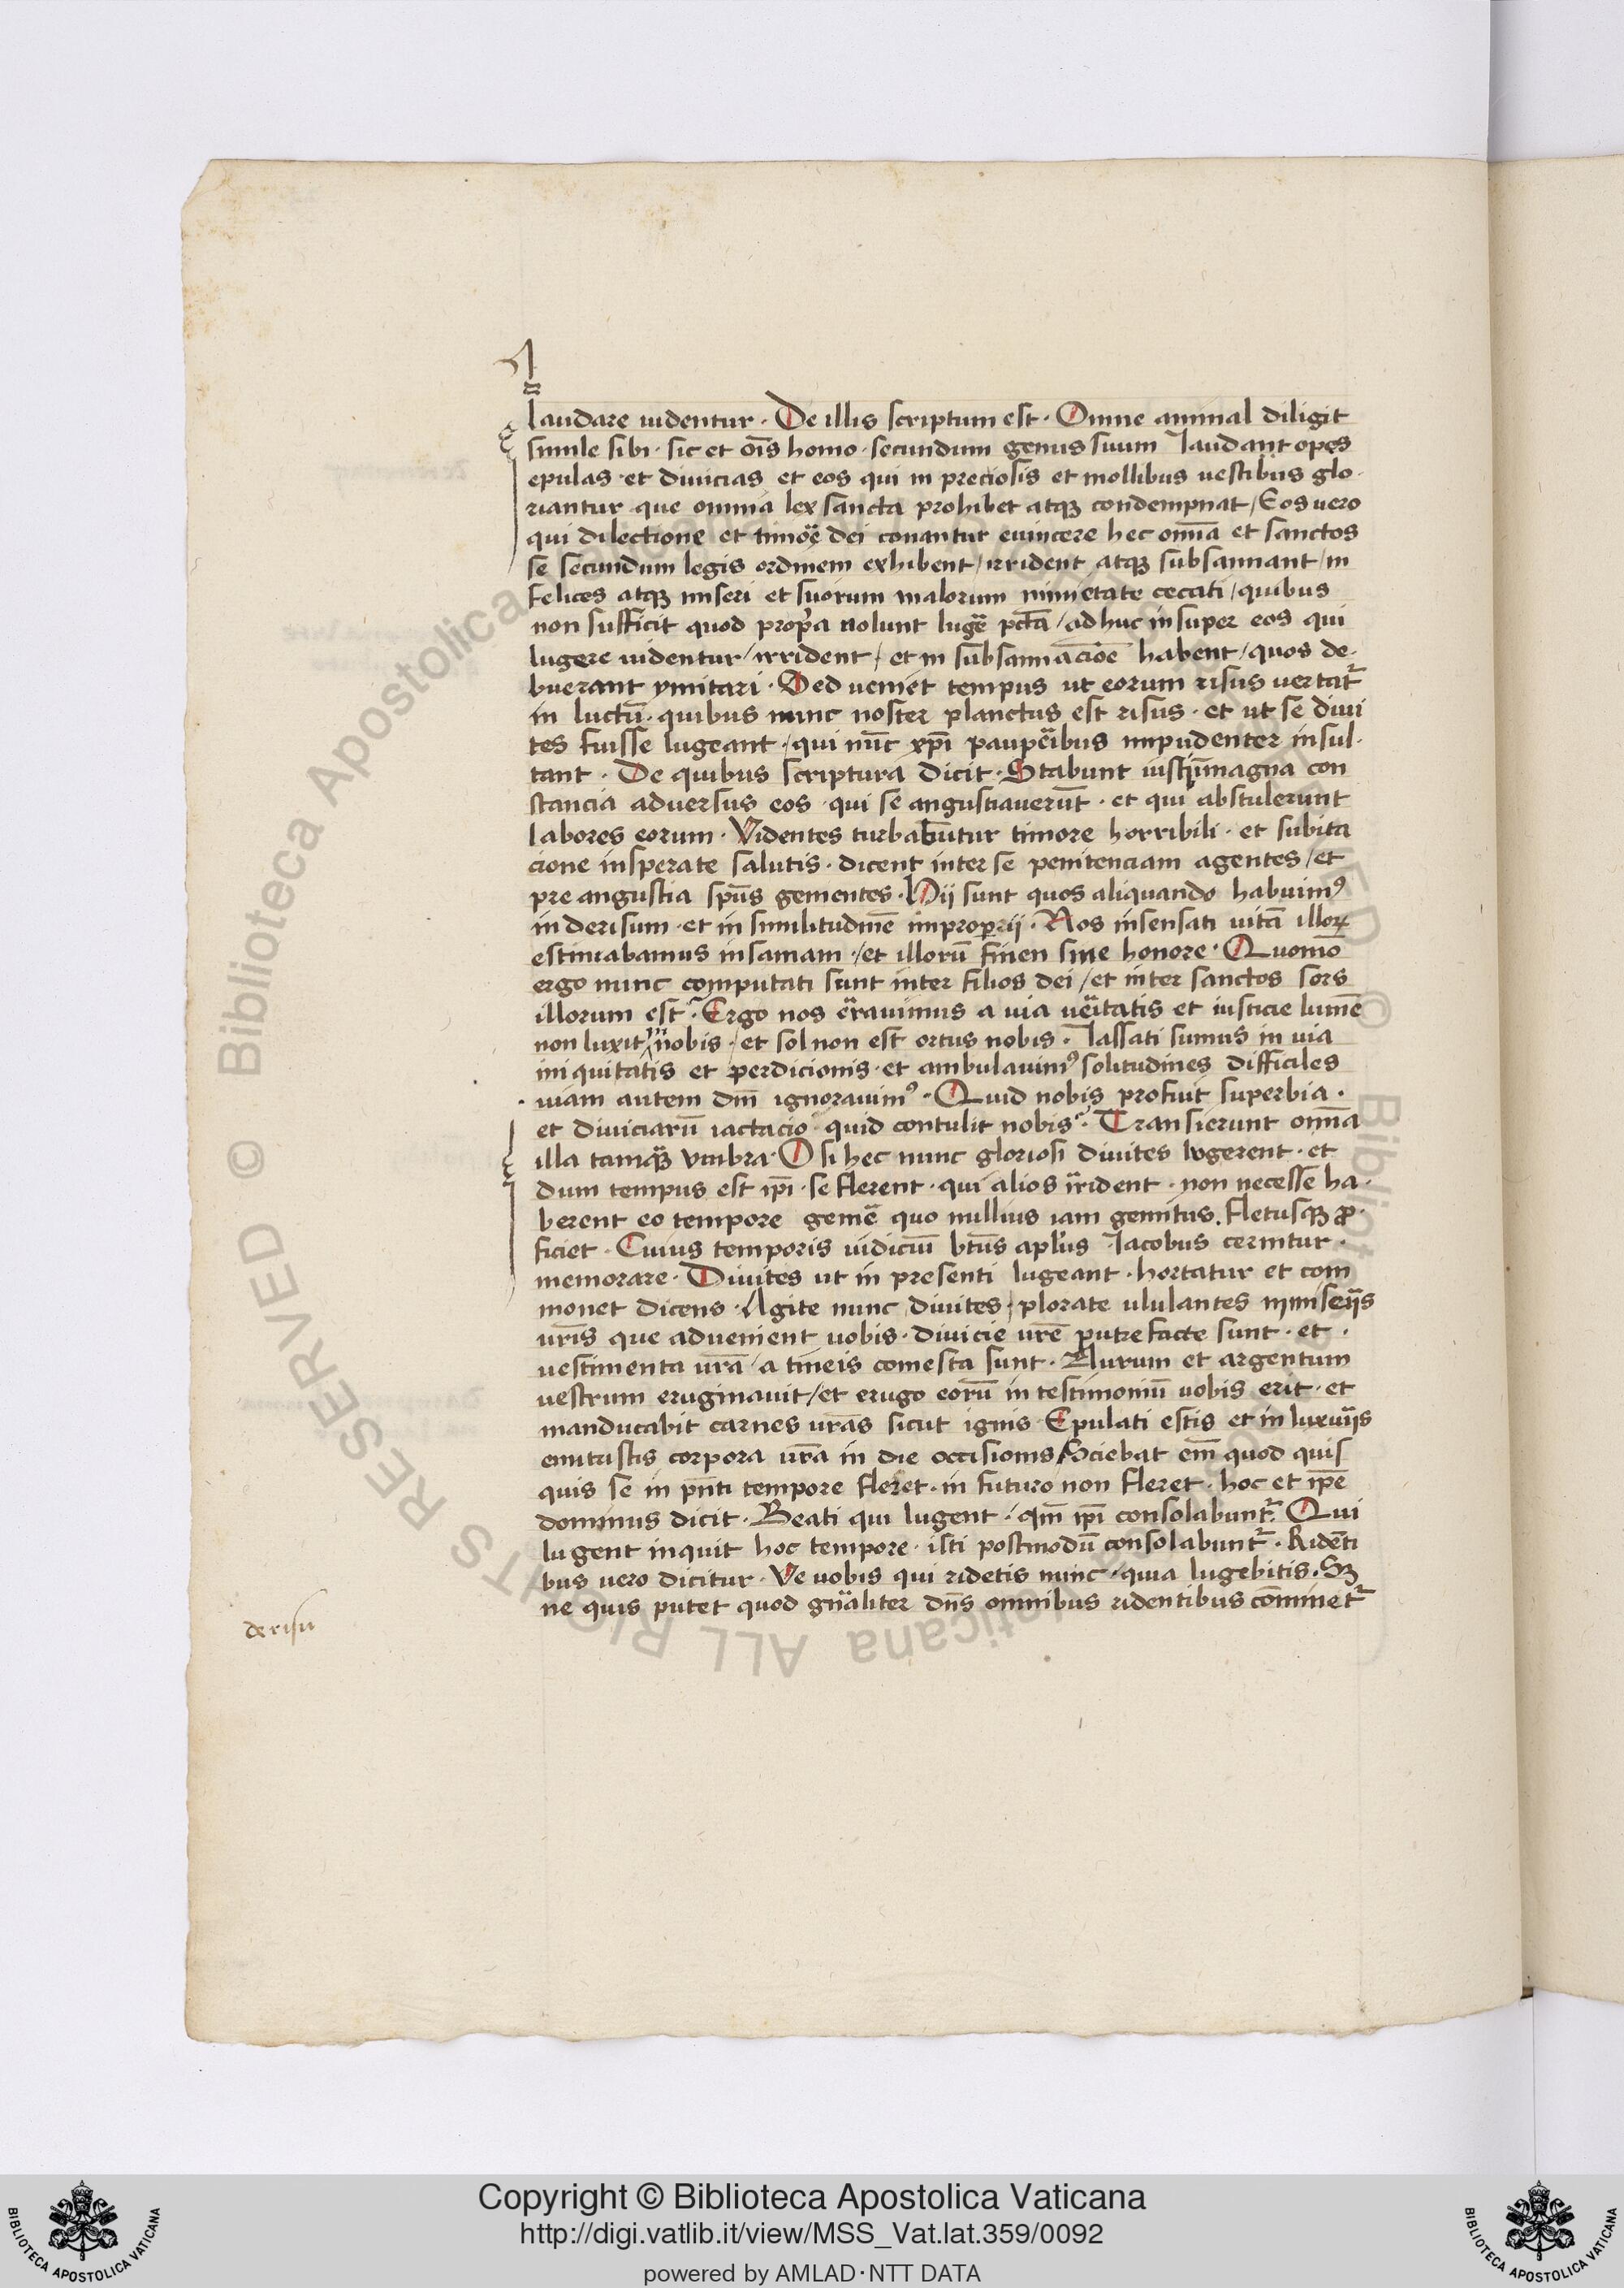 laudare uidentur · De illis scriptum est · Omne animal diligit
simile sibi · sic et oīs homo · secundum genus suum laudant opes
epulas · et diuicias et eos qui in preciosis et mollibus uestibus glo·
riantur · que omnia lex sancta prohibet atqꝫ condempnat / Eos uero
qui dilectione et timoꝛē dei conantur euincere hec om̄ia et sanctos
se secundum legis ordinem exhibent / irrident atqꝫ subsannant / in
felices atqꝫ miseri et suorum malorum nimietate cecati / quibus
non sufficit quod propͥa nolunt lugē̄ pctā / adhuc insuper eos qui
lugere uidentur / irrident / et in subsannacioē habent / quos de·
buerant ymitari · Sed ueniet tempus ut eorum risus uertat᷑
in luctū · quibus nunc noster planctus est risus · et ut se diui
tes fuisse lugeant · / qui nūc xp̄i paupēibus impudenter insul·
tant · De quibus scriptura dicit · Stabunt iusti in magna con
stancia aduersus eos · qui se angustiauerūt · et qui abstulerunt
labores eorum · Videntes turbabūtur timore horribili · et subita
cione insperate salutis · dicent inter se penitenciam agentes / et
pre angustia sp̄us gementes · Hii sunt quos aliquando habuimꝰ
in derisum · et in similitudinē improperii · Nos insensati uitā illoꝝ
estimabamus insaniam · / et illorū finen sine honore · Quomō
ergo nunc computati sunt inter filios dei / et inter sanctos sors
illorum est · Ergo nos ērauimus a uia uēitatis et iusticie lumē
non luxit in nobis · / et sol non est ortus nobis · lassati sumus in uia
iniquitatis et perdicionis · et ambulauimꝰ solitudines difficiles
· uiam autem dn̄i ignorauimꝰ · Quid nobis profuit superbia ·
et diuiciarū iactacio · quid contulit nobis · Transierunt om̄ia
illa tamqꝫ vmbra · O si hec nunc gloriosi diuites lvgerent · et
dum tempus est ip̄i · se flerent · qui alios īrident · non necesse ha·
berent eo tempore gemē quo nullius iam gemitus. fletusqꝫ ꝓ·
ficiet · Cuius temporis iudiciū btūs aplus Jacobus cernitur ·
memorare · Diuites ut in presenti lugeant · hortatur et com
monet dicens · Agite nunc diuites · plorate ululantes in misēiis
ur̄is que aduenient uobis · diuicie ur̄e putrefacte sunt · et ·
uestimenta ur̄a / a tineis comesta sunt · Aurum et argentum
uestrum eruginauit / et erugo eorū in testimoniū uobis erit · et
manducabit carnes ur̄as sicut ignis · Epulati estis et in luxuriis
enutristis corpora ur̄a in die occisionis / Sciebat em̄ quod quis
quis se in pn̄ti tempore fleret · in futuro non fleret · hoc et ip̄e
dominus dicit · Beati qui lugent · qm̄ ip̄i consolabunt᷑ · Qui
lugent inquit hoc tempore · isti postmodū consolabunt᷑ · Ridēti
bus uero dicitur · Ve uobis qui ridetis nunc · quia lugebitis · Sꝫ
ne quis putet quod gn̄aliter dn̄s omnibus ridentibus cōminet᷑
de risu
Copyright © Biblioteca Apostolica Vaticana
http://digi.vatlib.it/view/MSS_Vat.lat.359/0092
powered by AMLAD·NTT DATA
BIBLIOTECA APOSTOLICA VATICANA
BIBLIOTECA APOSTOLICA VATICANA